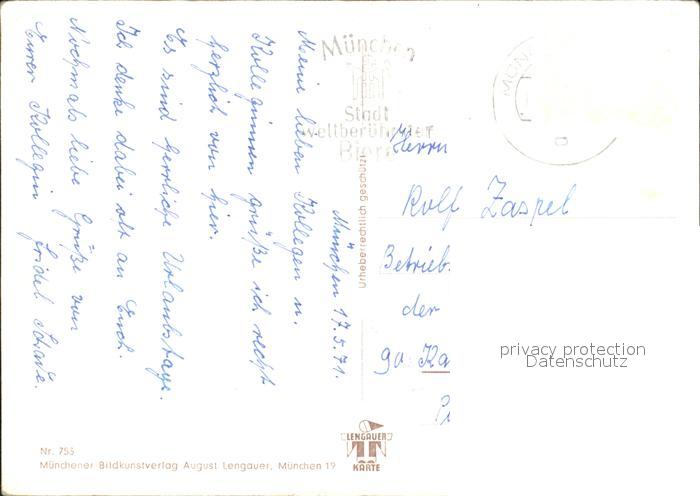 München 17.5.71.
Meine lieben Kollegen u.
Kolleginnen grüße ich recht
herzlich von hier.
Es sind herrliche Urlaubstage.
Ich denke dabei oft an Euch.
Nochmals liebe Grüße von
Eurer Kollegin
München
Stadt
weltberühmter
Biere
MÜN
Urheberrechtlich geschützt
Herrn
Rolf Zaspel
Betrieb.
der
90 Ka
privacy protection
Datenschutz
LENGAUER
KARTE
Nr. 755
Münchener Bildkunstverlag August Lengauer, München 19